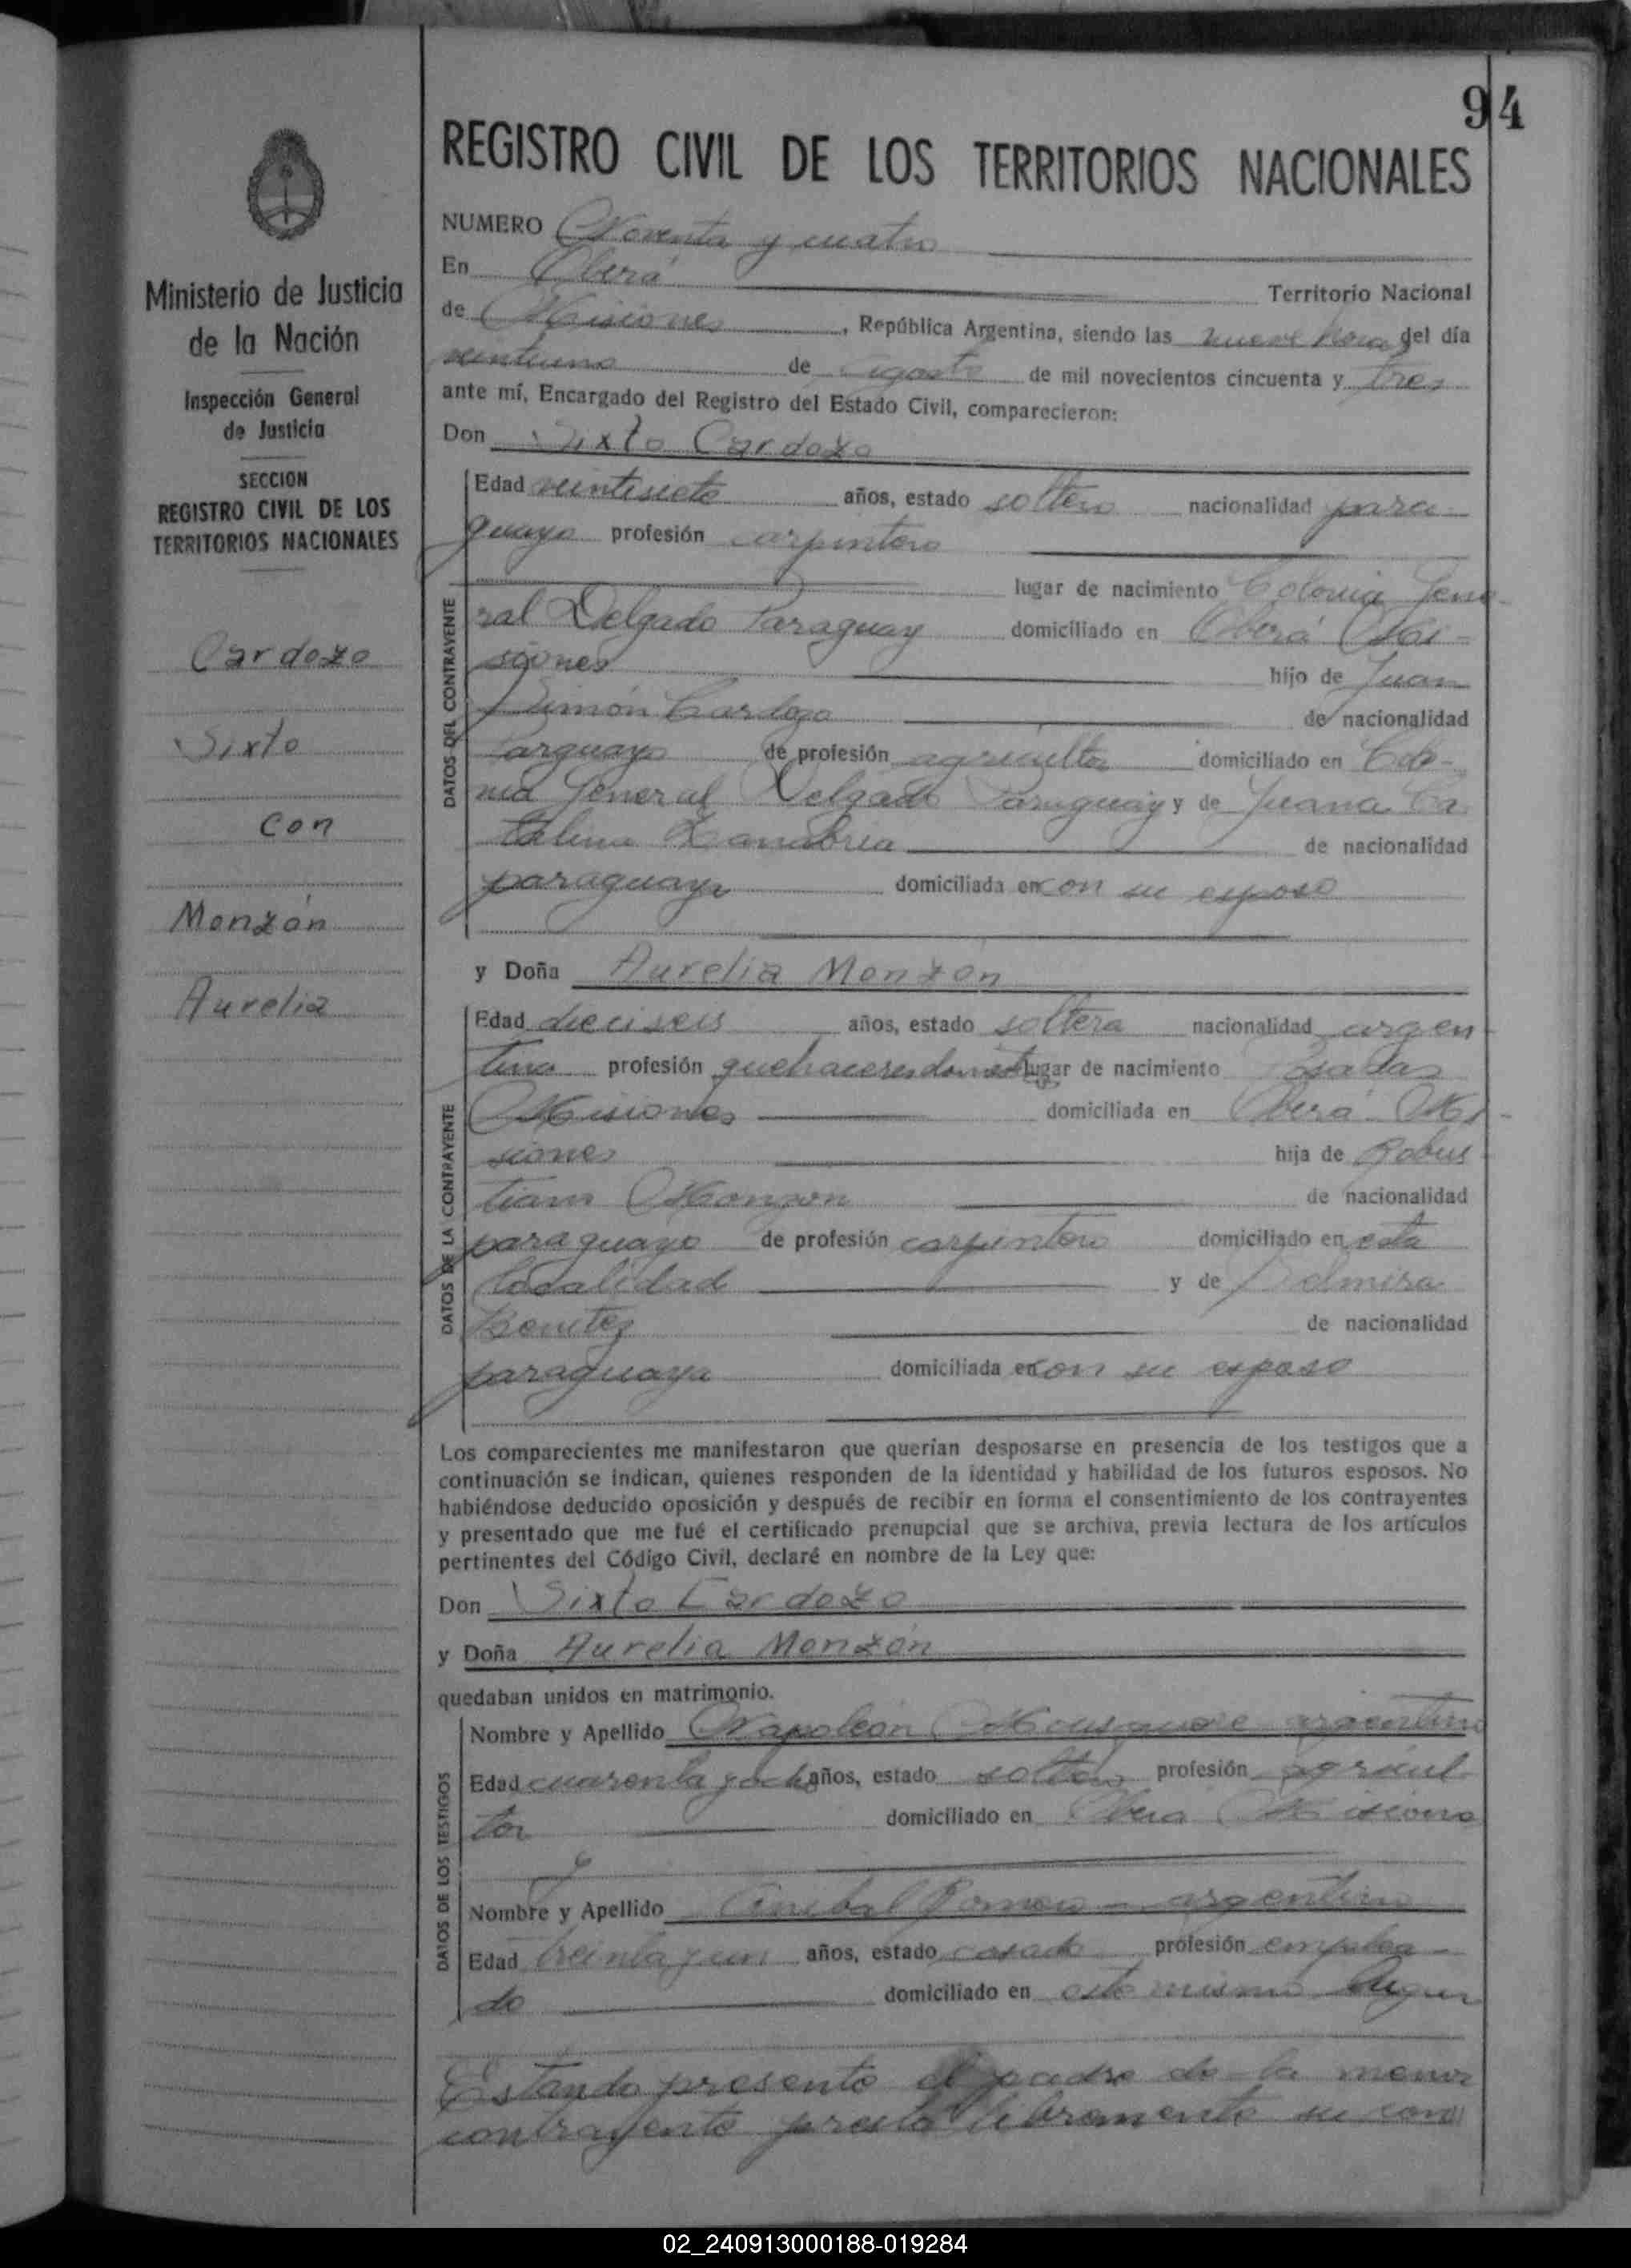 94
REGISTRO CIVIL DE LOS TERRITORIOS NACIONALES
Ministerio de Justicia
de la Nación
Inspección General
de Justicia
SECCION
REGISTRO CIVIL DE LOS
TERRITORIOS NACIONALES
Cardozo
Sixto
con
Monzón
Aurelia
NUMERO Noventa y cuatro
En Oberá Territorio Nacional
de Misiones, República Argentina, siendo las nueve horas del día
veintiuno de agosto de mil novecientos cincuenta y tres
ante mí, Encargado del Registro del Estado Civil, comparecieron:
Don Sixto Cardozo
DATOS DEL CONTRAYENTE
Edad veintisiete años, estado soltero nacionalidad para-
guayo profesión carpintero
lugar de nacimiento Colonia Gene-
ral Delgado Paraguay domiciliado en Oberá Mi-
siones hijo de Juan
Simón Cardozo de nacionalidad
parguayo de profesión agricultor domiciliado en Colo-
nia General Delgado Paraguay y de Juana Ca
talina Zanabria de nacionalidad
paraguaya domiciliada en con su esposo
y Doña Aurelia Monzón
DATOS DE LA CONTRAYENTE
Edad dieciseis años, estado soltera nacionalidad argen-
tina profesión quehaceres domest lugar de nacimiento Posadas
Misiones domiciliada en Oberá Mi-
siones hija de Robus
tiano Monzon de nacionalidad
paraguayo de profesión carpintero domiciliado en esta
localidad y de Delmira
Benitez de nacionalidad
paraguaya domiciliada en con su esposo
Los comparecientes me manifestaron que querían desposarse en presencia de los testigos que a
continuación se indican, quienes responden de la identidad y habilidad de los futuros esposos. No
habiéndose deducido oposición y después de recibir en forma el consentimiento de los contrayentes
y presentado que me fué el certificado prenupcial que se archiva, previa lectura de los artículos
pertinentes del Código Civil, declaré en nombre de la Ley que:
Don Sixto Cardozo
y Doña Aurelia Monzón
quedaban unidos en matrimonio.
DATOS DE LOS TESTIGOS
Nombre y Apellido Napoleón argentino
Edad cuarenta y ocho años, estado soltero profesión agricul
tor domiciliado en Oberá Misiones
Nombre y Apellido Anibal Romero - argentino
Edad treinta y un años, estado casado profesión emplea-
do domiciliado en este mismo lugar
Estando presente el padre de la menor
contrayente presta libremente su con
02_240913000188-019284